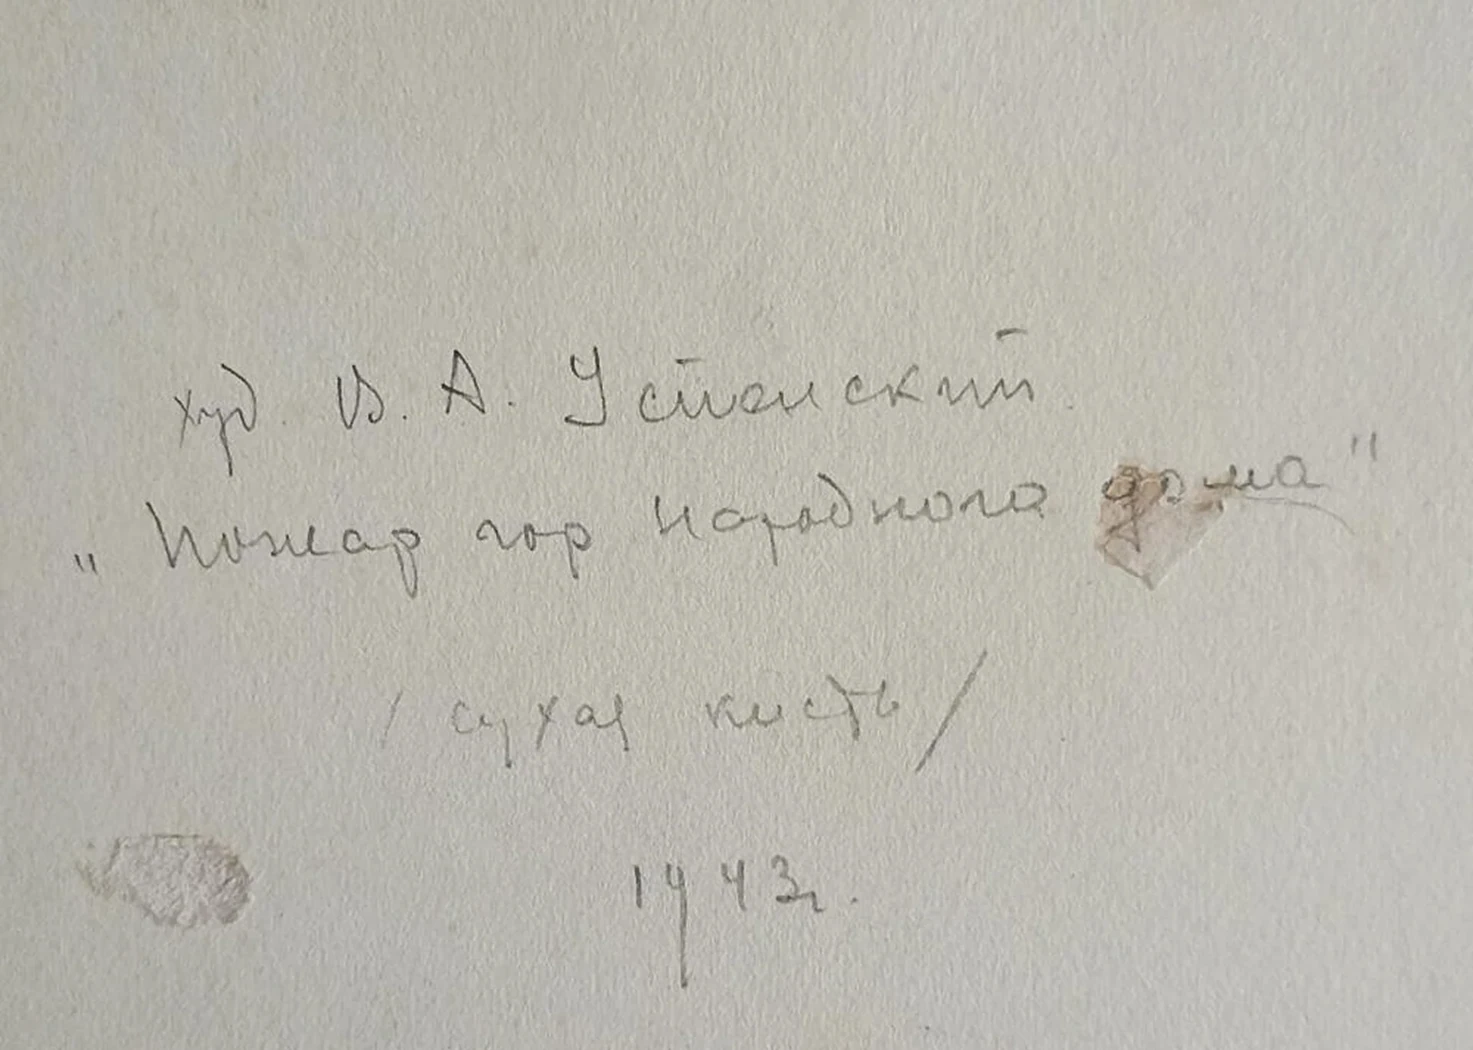 худ. В. А. Успенский
„Пожар гор народного дома"
/сухая кисть/
1943г.